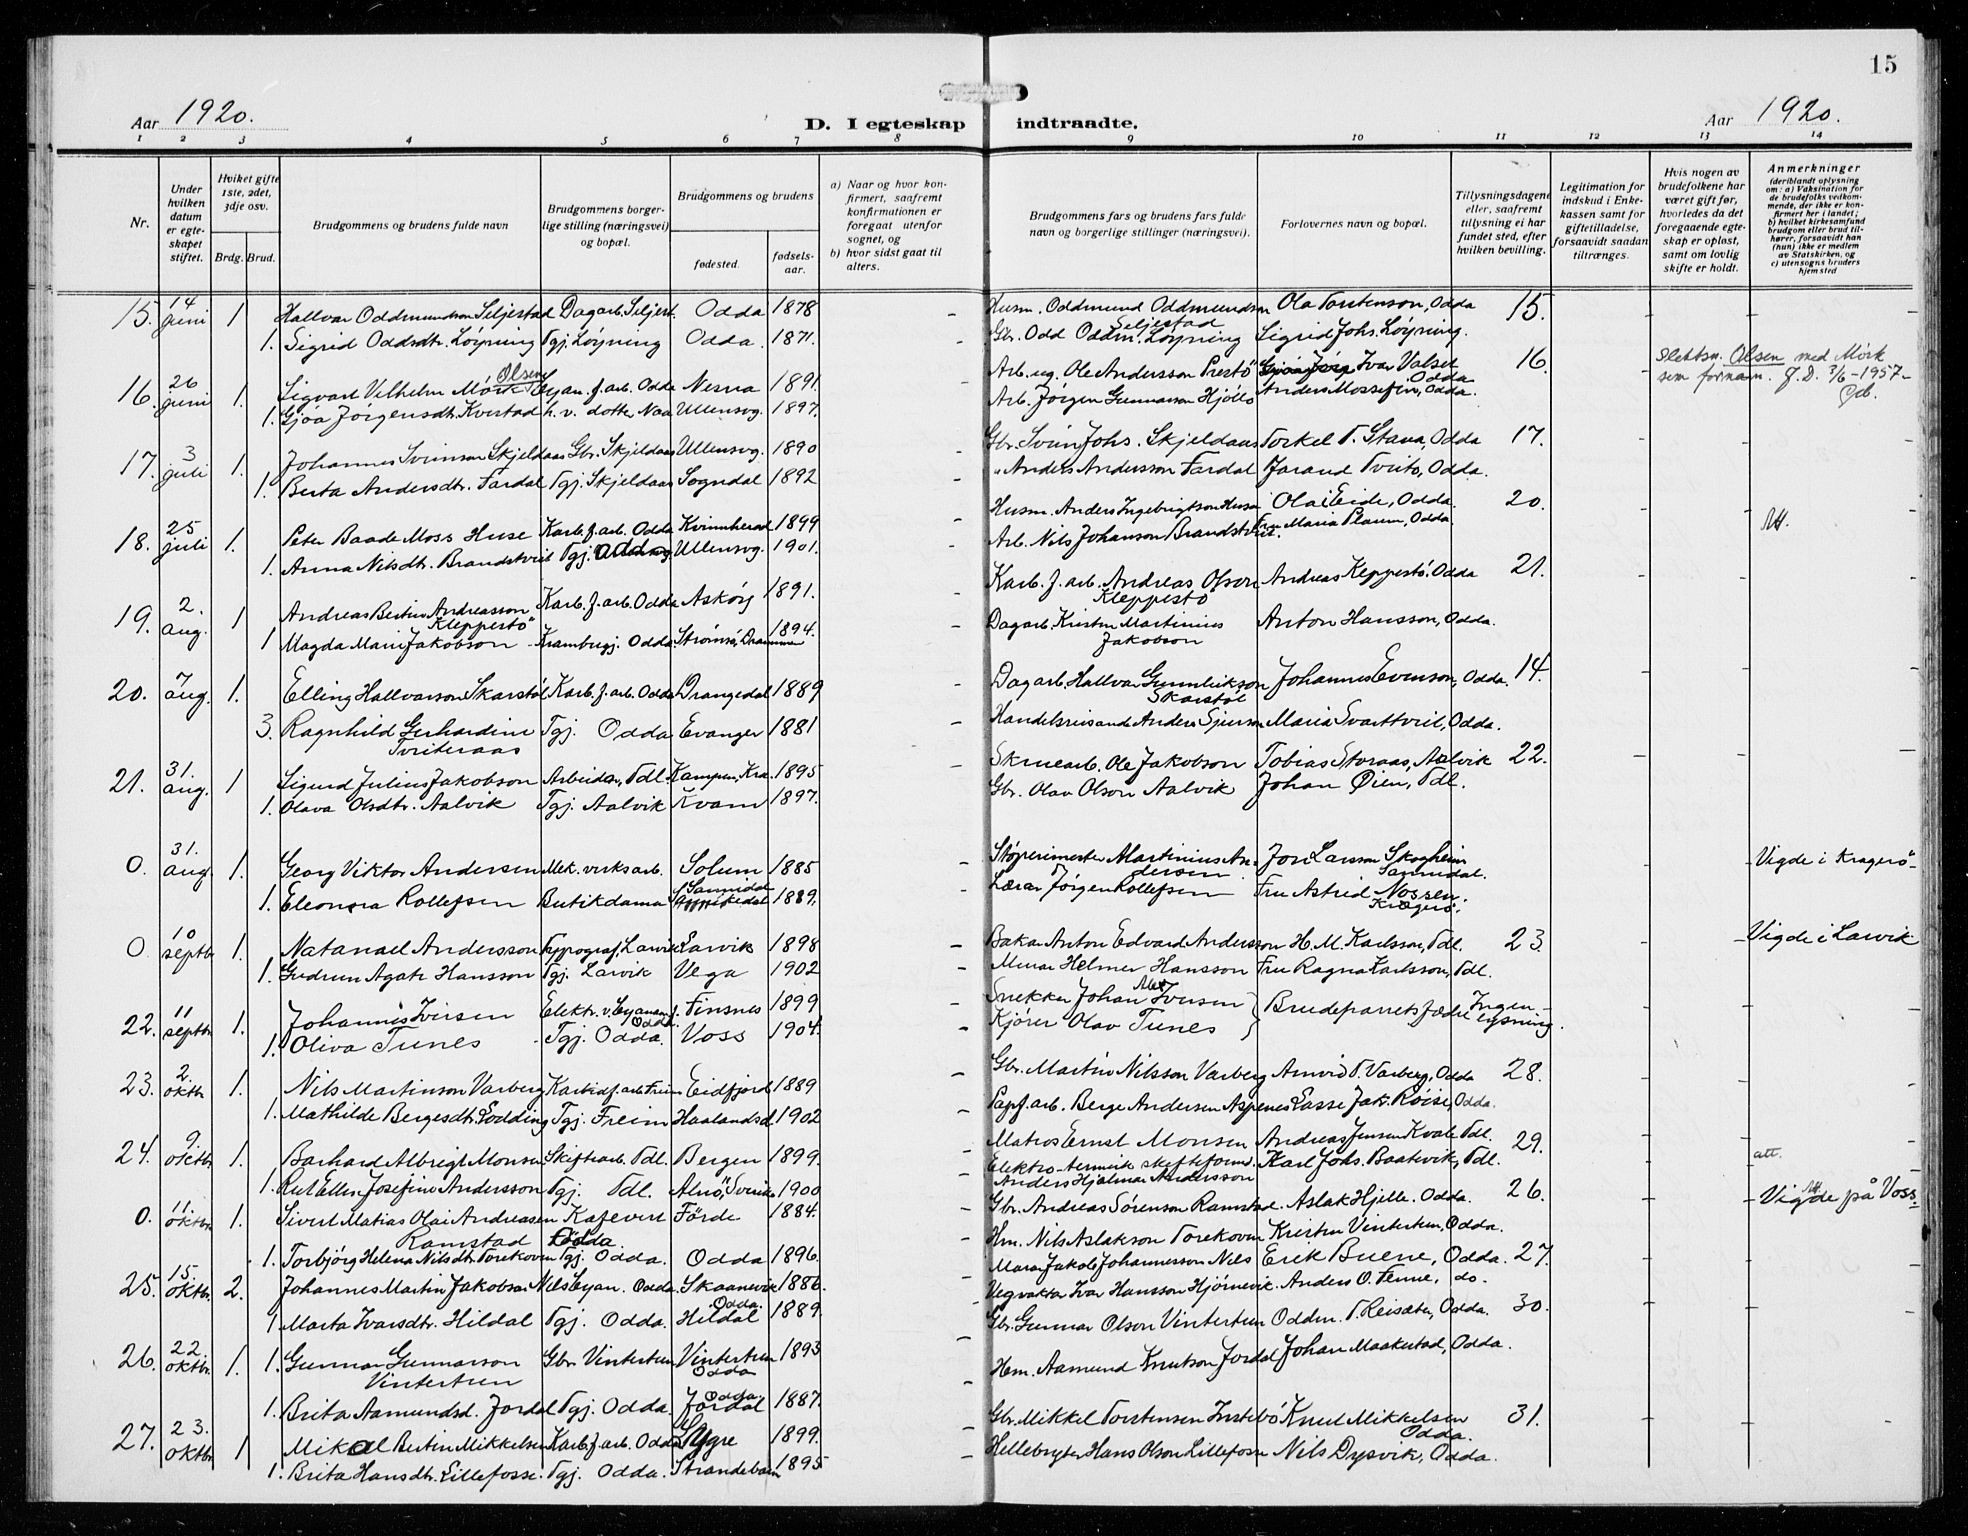 15
Aar 1920.
D. I egteskap indtraadte.
Aar 1920.
1 2 3 4 5 6 7 8 9 10 11 12 13 14
Nr.
Under hvilken datum er egteskapet stiftet.
Hviket gifte 1ste, 2det, 3dje osv.
Brdg. Brud.
Brudgommens og brudens fulde navn
Brudgommens borgerlige stilling (næringsvei) og bopæl.
Brudgommens og brudens
fødested.
fødselsaar.
a) Naar og hvor konfirmert, saafremt konfirmationen er foregaat utenfor sognet, og
b) hvor sidst gaat til alters.
Brudgommens fars og brudens fars fulde navn og borgerlige stillinger (næringsvei).
Forlovernes navn og bopæl.
Tillysningsdagene eller, saafremt tillysning ei har fundet sted, efter hvilken bevilling.
Legitimation for indskud i Enkekassen samt for giftetilladelse, forsaavidt saadan tiltrænges.
Hvis nogen av brudefolkene har været gift før, hvorledes da det foregaaende egteskap er opløst, samt om lovlig skifte er holdt.
Anmerkninger
(deriblandt oplysning om: a) Vaksination for de brudefolks vedkommende, der ikke er konfirmert her i landet; b) hvilket kirkesamfund brudgom eller brud tilhører, forsaavidt han (hun) ikke er medlem av Statskirken, og c) utensogns bruders hjemsted
15. 14 juni 1 Hallvar Oddmundson Seljestad Dagarb. Seljest. Odda 1878 Husm. Oddmund Oddmundson Seljestad Ola Torstenson, Odda 15.
1. Sigrid Oddsdtr. Løyning Tgj. Løyning Odda 1871. Gbr. Odd Oddm. Løyning Sigrid Johs. Løyning.
16. 26 juni 1. Sigvart Vilhelm Mørk Olsen Cyan. f. arb. Odda Nesna 1891. Arb. ug. Ole Andersson Prestö Ivar Valset Odda 16. Slektsn. Olsen med Mörk sem fornamn. J.D. 3/6-1957-
1. Gjøa Jørgensdtr. Kvestad h. v. dotter Naa Ullensvg. 1897. Arb. Jørgen Gunnarson Hjøllo Anders Mossefin, Odda.
17. 3 juli 1. Johannes Sveinson Skjeldaas Gbr. Skjeldaas Ullensvg. 1890 Gbr. Svein Johs. Skjeldaas Torkel T. Stana, Odda 17.
1. Berta Andersdtr. Fardal Tgj. Skjeldaas Sogndal 1892 " Anders Andersson Fardal Jarand Tveito, Odda.
18. 25 juli 1. Peter Baade Moss Huse Karb. f. arb. Odda Kvinnherad 1899 Husm. Anders Ingebrigtson Huse Olai Eide, Odda. 20. Att.
1. Anna Nilsdtr. Brandstveit Tgj. Odda Ullensvg. 1901. Arb. Nils Johanson Brandstveit. Fru Maria Plaum, Odda
19. 2. aug. 1 Andreas Bertin Andreasson Kleppestö Karb. f. arb. Odda Askøy 1891. Karb. f. arb. Andreas Olson Kleppestö Andreas Kleppestö, Odda 21.
1 Magda Marie Jakobson Krambugj. Odda. Strømsö, Drammen 1894. Dagarb. Kristen Martinius Jakobson Anton Hansson, Odda.
20. 7 aug. 1. Elling Hallvarson Skarstøl Karb. f. arb. Odda Drangedal 1889 Dagarb. Hallvar Gunnleikson Skarstøl Johannes Evenson, Odda. 14.
3. Ragnhild Gerhardine Tviteraas Tgj. Odda Evanger 1881 Handelsreisande Anders Sjurson Maria Svarttveit, Odda.
21. 31. aug. 1 Sigurd Julius Jakobson Arbeider, Tdl. Kampen, Kra. 1895 Skruearb. Ole Jakobson Tobias Storaas, Aalvik 22.
1. Olava Olsdtr. Aalvik Tgj. Aalvik Kvam 1897. Gbr. Olav Olson Aalvik Johan Øien, Tdl.
0. 31. aug. 1. Georg Viktor Andersen Mek. verksarb. Solum 1885 Støperimester Martinius Andersen Jon Larsson Skogheim Sannidal. Vigde i Kragerö
1. Eleonora Rollefsen Butikdama Sannidal 1889. Lærar Jörgen Rollefsen Fru Astrid Nossen. Kragerö.
0 10 septbr 1. Natanael Andersson Typograf, Larvik Larvik 1898 Bakar Anton Edvard Andersson H. M. Karlsson, Tdl. 23 Vigde i Larvik
1. Gudrun Agate Hansson Tgj. Larvik Vega 1902 Murar Helmer Hansson Fru Ragna Karlsson, Tdl.
22. 11 septbr 1. Johannes Iversen Elektr. v. Cyanam. f. Odda. Finsnes 1899 Snekker Johan Iversen Brudeparrets fædre Ingen lysning.
1. Oliva Tunes Tgj. Odda. Voss 1904. Kjører Olav Tunes
23. 2. oktbr 1. Nils Martinson Varberg Karbidf. arb. Freim Eidfjord 1889 Gbr. Martin Nilsson Varberg Arnvid T. Varberg, Odda 28.
1. Mathilde Bergesdtr. Lodding Tgj. Freim Haalandsd. 1902 Papf. arb. Berge Andersen Aspenes Lasse Jak. Røise, Odda.
24. 9. oktbr 1. Barhard Albrigt Monsen Skiftarb. Tdl. Bergen 1899. Matros Ernst Monsen Andreas Jensen Kvale Tdl. 29. att.
1. Rut Ellen Josefine Andersson Tgj. Tdl. Alnö, Sverike 1900 Elektro-termisk skifteform. Anders Hjalmar Andersson Karl Johs. Baatevik, Tdl.
0. 11. oktbr. 1. Sivert Matias Olai Andreasen Ramstad Kafevert Odda Förde 1884. Gbr. Andreas Sørenson Ramstad. Aslak Hjelle. Odda. 26. Vigde på Voss.
1. Torbjörg Helena Nilsdtr. Torekoven Tgj. Odda. Odda 1896. Hm. Nils Aslakson Torekoven Kristen Vintertun, Odda.
25. 15. oktbr. 2. Johannes Martin Jakobson Nils Cyan. Odda Skaanevik 1886. Murar Jakob Johannesson Nils Erik Buene, Odda. 27.
1 Marta Ivarsdtr. Hildal Tgj. Odda. Hildal Odda. 1889. Vegvakter Ivar Hansson Hjørnevik. Anders O. Tenne, do.
26. 22. oktbr. 1. 1. Gunnar Gunnarson Vintertun Gbr. Vintertun Vintertun Odda 1893 Gbr. Gunnar Olson Vintertun Oddm. T. Reisæter, Odda. 30.
1. Brita Aamundsd. Jordal Tgj. Odda. Jordal Odda. 1887. Hem. Aamund Knutson Jordal Johan Maakestad, Odda.
27. 23. oktbr 1 Mikal Bertin Mikkelsen Karb. f. arb. Odda Ygre 1899. Gbr. Mikkel Torstensen Instebö Knut Mikkelsen Odda. 31.
1. Brita Hansdtr. Lillefosse. Tgj. Odda. Strandebarm 1895 Hellebryter Hans Olson Lillefosse Nils Dysvik, Odda.